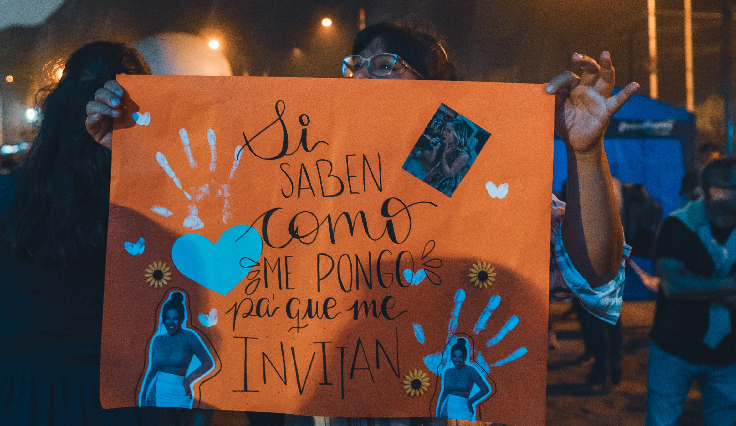 Si
SABEN
como
ME PONGO
pa' que me
INVITAN